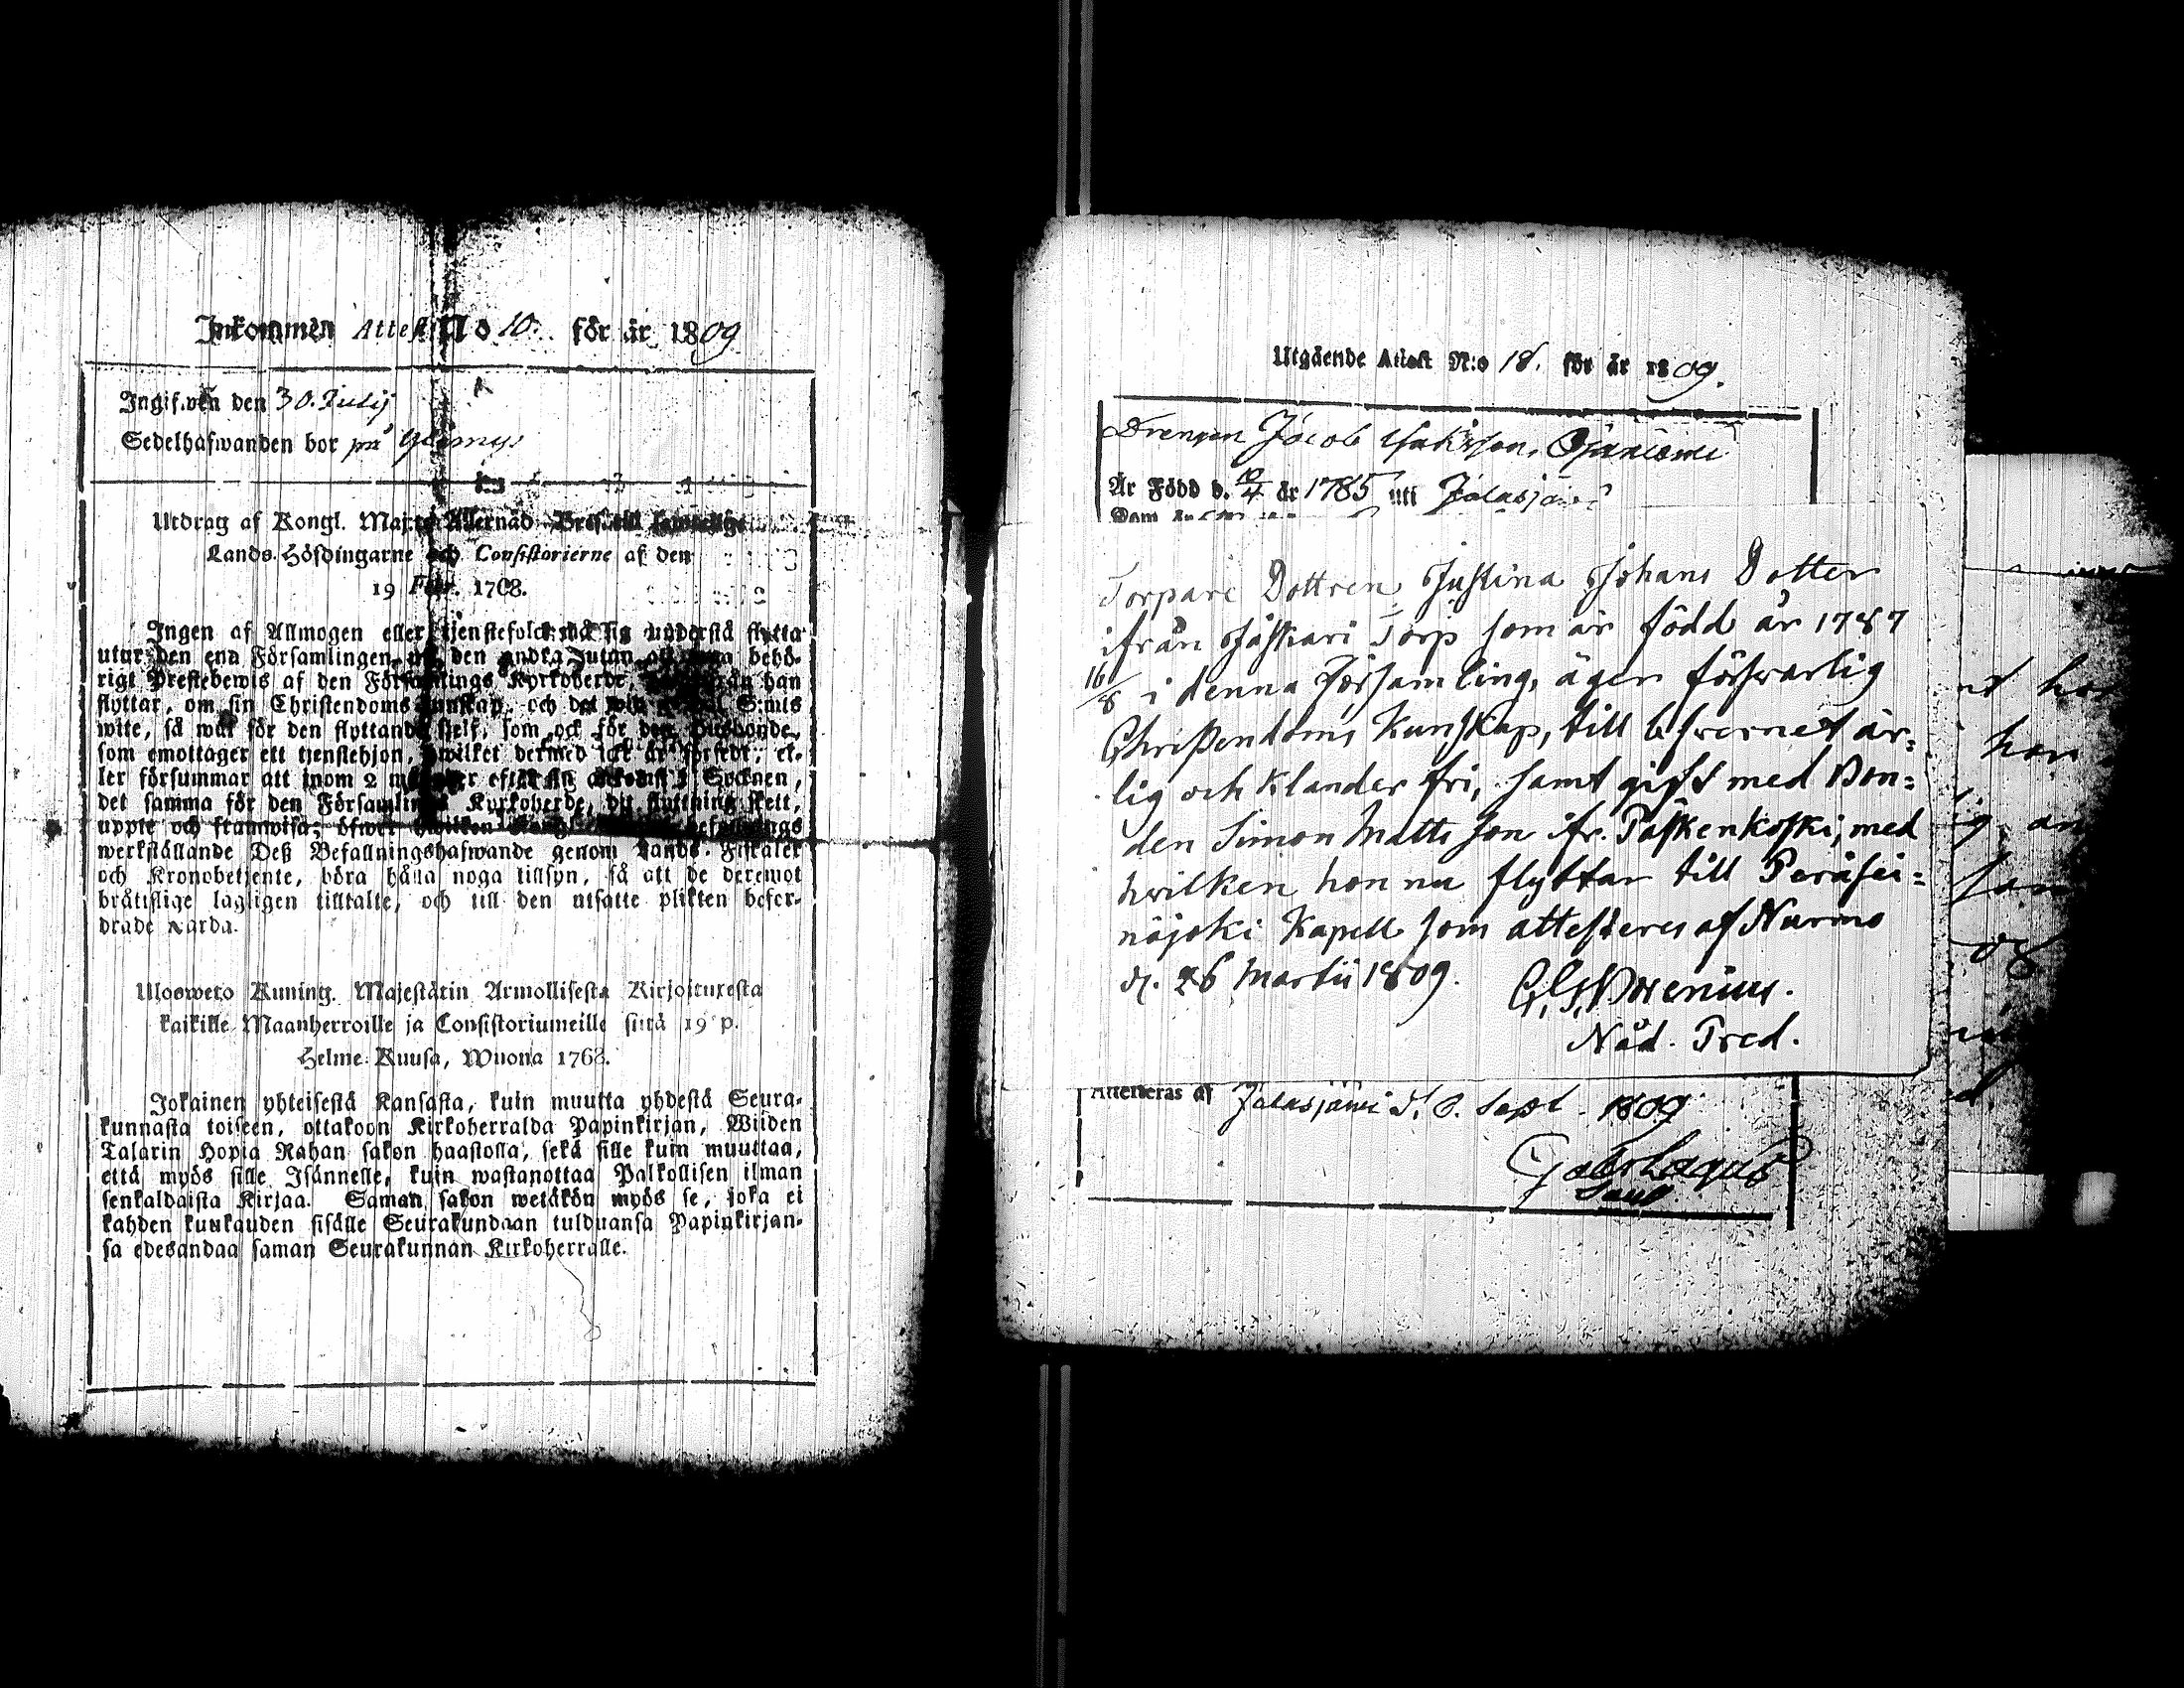 Inkommen Attest No 10. för år 1809
Ingifven den 30. Julij
Sedelhafwanden bor på
Utdrag af Kongl. Maj:ts Allernåd. Bref till samtelige
Lands-Höfdingarne och Consistorierne af den
19 Febr. 1768.
Ingen af Allmogen eller tjenstefolck må sig understå flytta
utur den ena Församlingen, den andra, utan behö-
rigt Prestebewis af den Församlings Kyrkoherde, han
flyttar, om sin Christendoms kunskap, och det wid S:mts
wite, så wäl för den flyttande sjelf, som ock för den Husbonde,
som emottager ett tjenstehjon, hwilket dermed icke är försedt, el-
ler försummar att inom 2 månader efter sin ankomst i Socknen,
det samma för den Församlings Kyrkoherde, dit flyttning skett,
uppte och framwisa; öfwer hwilken Kongl.
werkställande Deß Befallningshafwande genom Lands-Fiskaler
och Kronobetjente, böra hålla noga tillsyn, så att de deremot
bråtslige lagligen tilltalte, och till den utsatte plikten befor-
drade warda.
Ulosweto Kuning. Majestätin Armollisesta Kirjoituxesta
kaikille Maanherroille ja Consistoriumeille siitä 19 p.
Helme-Kuusa, Wuona 1768.
Jokainen yhteisestä Kansasta, kuin muutta yhdestä Seura-
kunnasta toiseen, ottakoon Kirkoherralda Papinkirjan, Wiiden
Talarin Hopia Rahan sakon haastolla, sekä sille kuin muuttaa,
että myös sille Isännelle, kuin wastanottaa Palkollisen ilman
senkaldaista Kirjaa. Saman sakon wetäkön myös se, joka ei
kahden kuukauden sisälle Seurakundaan tulduansa Papinkirjan-
sa edesandaa saman Seurakunnan Kirkoherralle.
Utgående Attest N:o 18. för år 1809.
Drengen Jacob Isaksson,
Är Född d. 10/4 år 1785 uti Jalasjärvi
Torpare Dottren Justina Johans Dotter
ifrån Jåskari Torp som är född år 1787
16/8 i denna Församling, äger förswarlig
Christendoms Kunskap, till lefwernet är-
lig och klander fri, samt gift med Bon-
den Simon Matts son ifr. Påskenkoski, med
hwilken hon nu flyttar till Peräsei-
näjoki Kapell som attesteres af Nurmo
d. 26 Martii 1809.
Nåd. Pred.
Attesteras af Jalasjärvi d. 6. Sept. 1809
Gabr Lagus